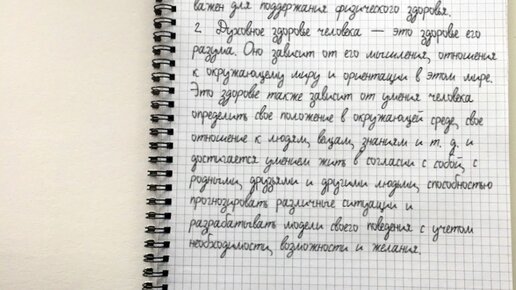 важен для поддержания физического здоровья.
2. Духовное здоровье человека — это здоровье его
разума. Оно зависит от его мышления, отношения
к окружающему миру и ориентации в этом мире.
Это здоровье также зависит от умения человека
определить свое положение в окружающей среде, свое
отношение к людям, вещам, знаниям и т. д. и
достигается умением жить в согласии с собой, с
родными, друзьями и другими людьми, способностью
прогнозировать различные ситуации и
разрабатывать модели своего поведения с учетом
необходимости, возможности и желания.